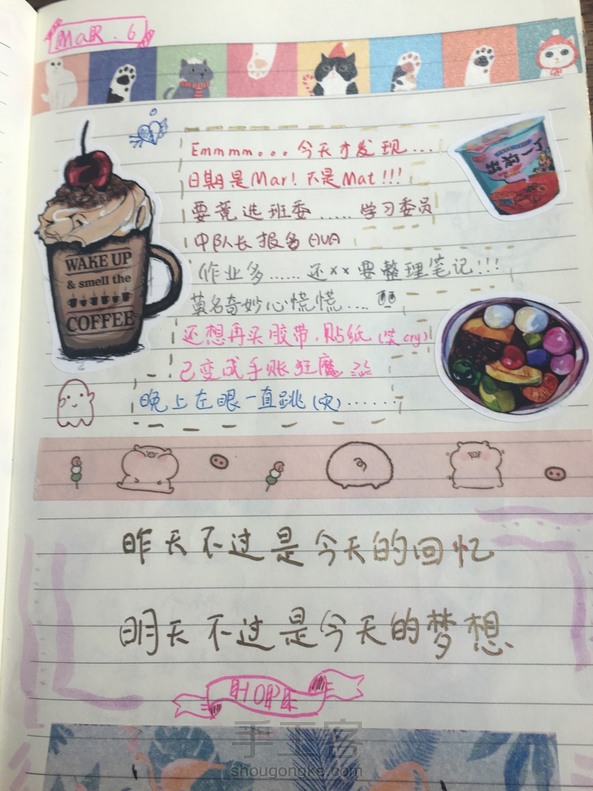 MaR. 6
Emmmm。。。今天才发现...
日期是Mar! 不是Mat!!!
要竞选班委......学习委员
中队长报名
作业多......还××要整理笔记!!!
莫名奇妙心慌慌....
还想再买胶带,贴纸(笑cry)
已变成手账狂魔
晚上左眼一直跳(灾)......
WAKE UP
& smell the
COFFEE
出前一丁
昨天不过是今天的回忆
明天不过是今天的梦想
HOPE
手工客
shougongke.com